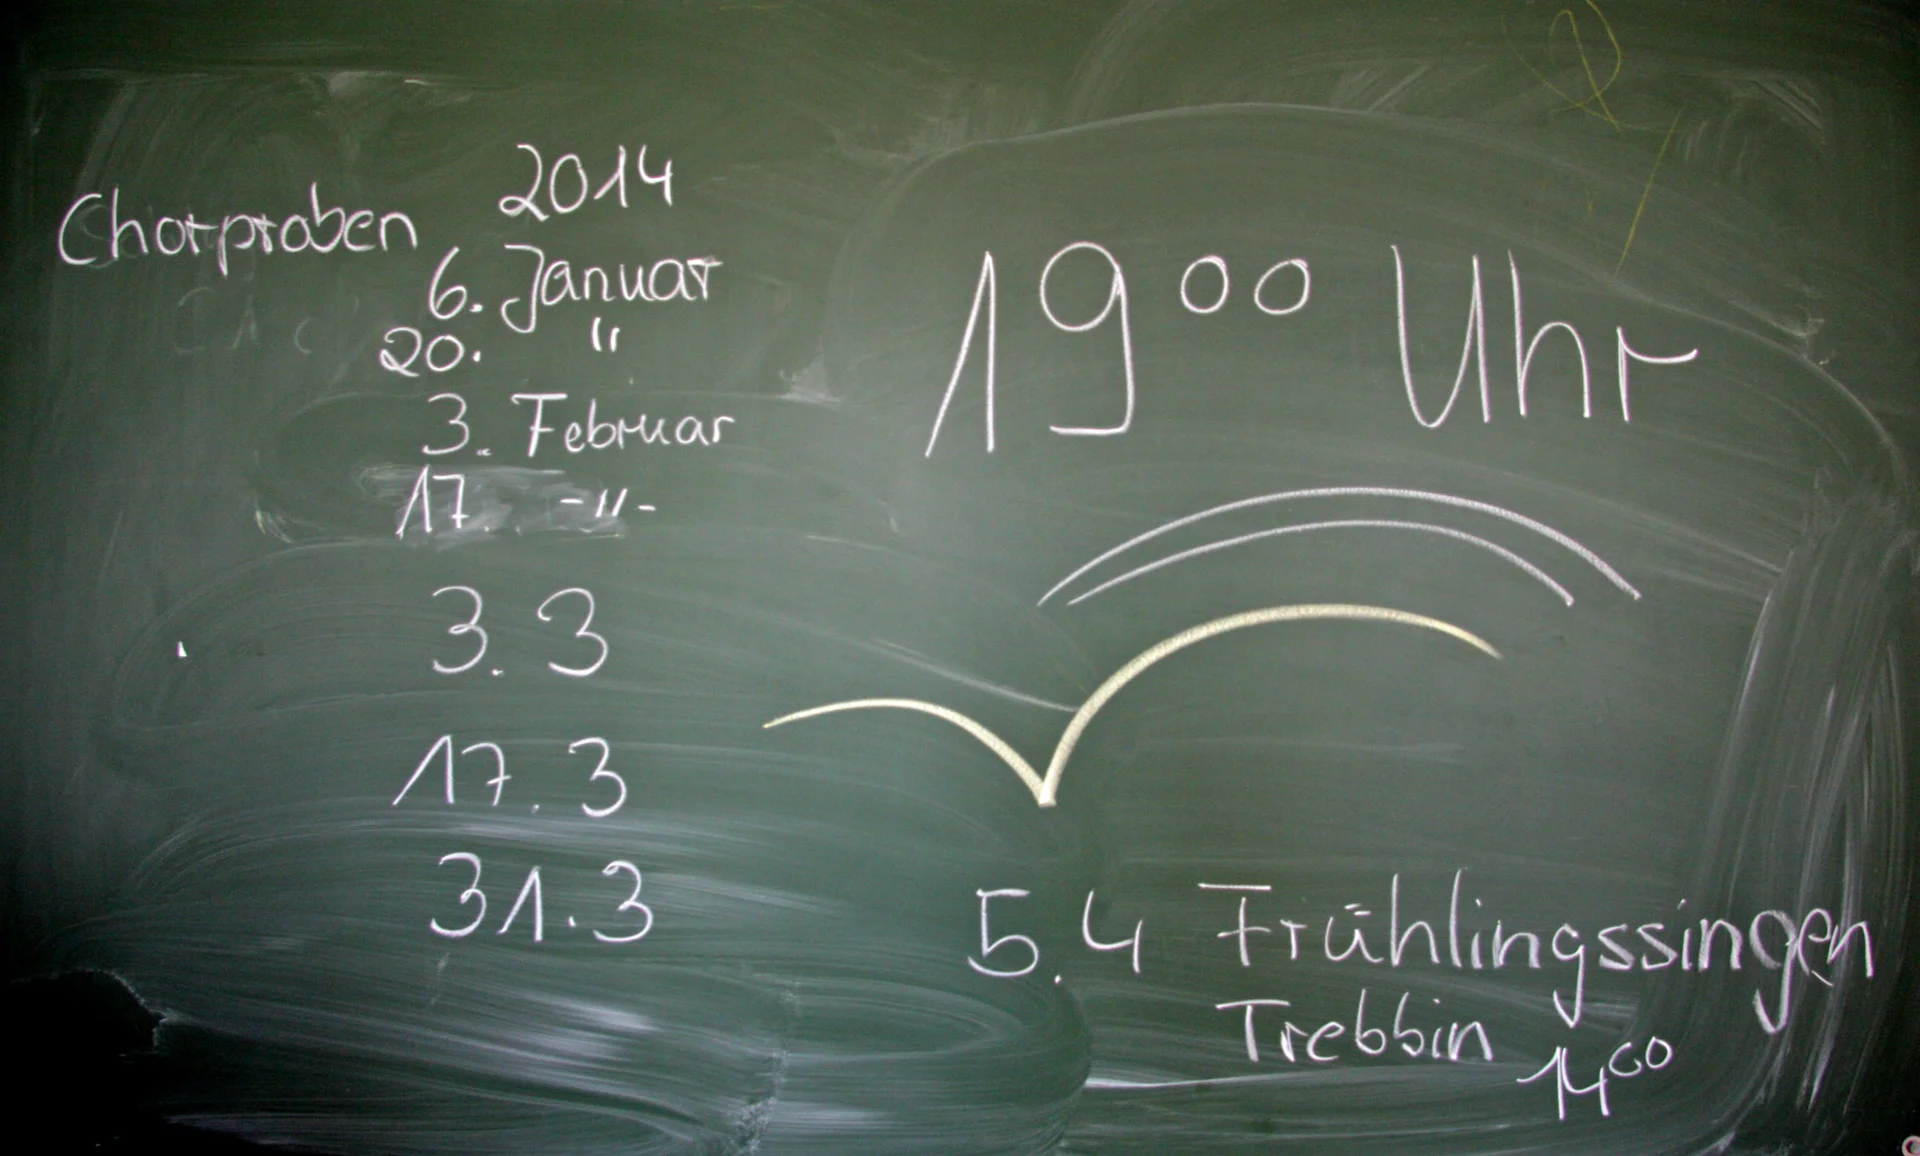 Chorproben 2014
6. Januar
20. "
3. Februar
17. -"-
3.3
17.3
31.3
19⁰⁰ Uhr
5.4 Frühlingssingen
Trebbin
14⁰⁰